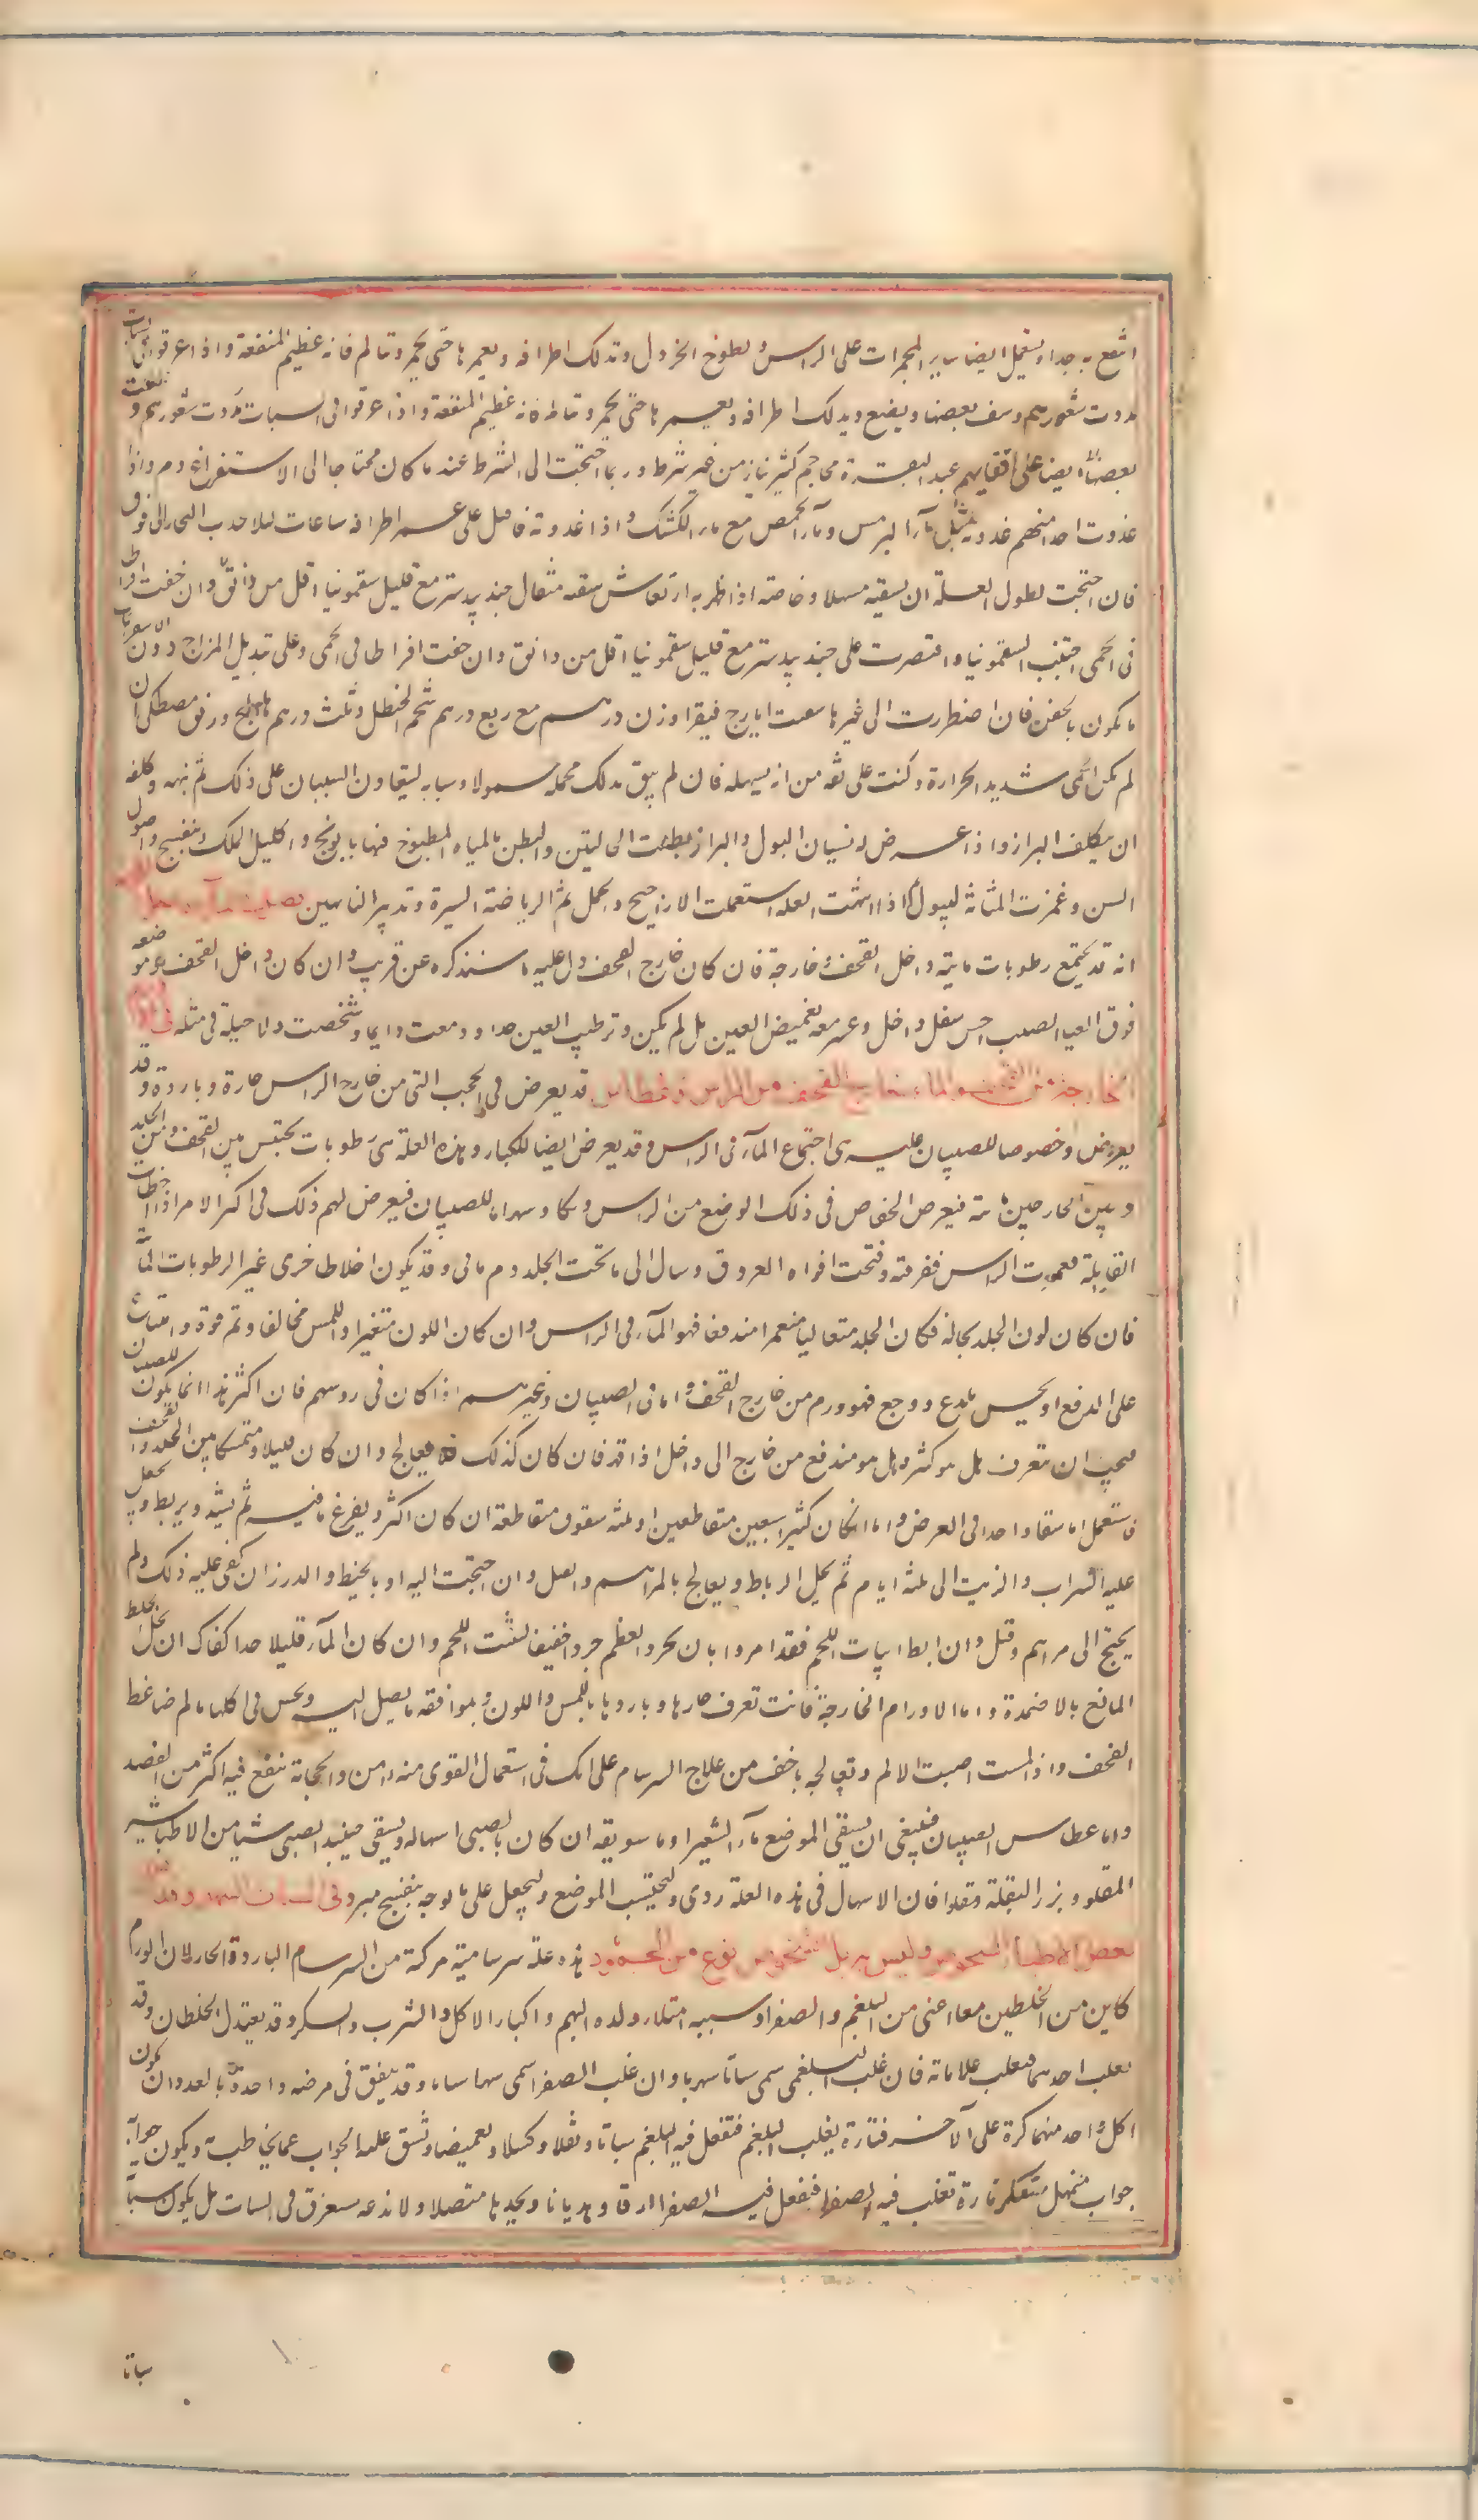 انتفع به جدا ويستعمل ايضا ساير المحمرات على الراس ولطوخ الخردل وتدلك اطرافه ويغمرها حتى يحمر وتالم فانه عظيم المنفعة واذا غرقوا في السبات
مدت شعورهم ونتف بعضها ويدلك اطرافه ويغمرها حتى يحمر وتالم فانه عظيم المنفعة واذا غرقوا في السبات مدت شعورهم و
بعضها ايضا على اقفايهم عند النقرة محاجم كثير نارية من غير شرط وربما احتجت الى الشرط عند ما كان محتاجا الى الاستفراغ دم واذا
غذوت احدا منهم غذوته بمثل مآء الترمس ومآء الحمص مع مآء الكشك واذا غذوته فاقبل على غمر اطرافه ساعات لئلا يجذب البخار الى فوق
فان احتجت لطول العلة ان تسقيه مسهلا وخاصته اذا ظهر به ارتعاش سقيته مثقال جندبيدستر مع قليل سقمونيا اقل من دانق وان خفت افراطا
في الحمى اجتنب السقمونيا واقتصرت على جندبيدستر مع قليل سقمونيا اقل من دانق وان خفت افراطا في الحمى وعلى تبديل المزاج دون الاستفراغات
ما يكون بالحقن فان اضطررت الى غيرها سقيت ايارج فيقرا وزن درهم مع ربع درهم شحم الحنظل وثلث درهم هليلج ودانق مصطكى ان
لم يكن الحمى شديد الحرارة وكنت على ثقة من انه يسهله فان لم تثق بذلك فحمله حمولا وسيايه ليتعاون السببان على ذلك ثم نبهه وكلفه
ان يتكلف البراز واذا عرض له نسيان البول والبراز نطلت الحالبين والبطن بالمياه المطبوخ فيها بابونج واكليل الملك وبنفسج واصول
السوسن وغمزت المثانة ليبول فاذا انتهت العلة استعملت الاراجيح والحمل ثم الرياضة اليسيرة وتدبير الناقهين فصل في المآء داخل القحف
انه قد يجتمع رطوبات مايية داخل القحف وخارجة فان كان خارج القحف دل عليه ما سنذكره عن قريب وان كان داخل القحف وموضعه
فوق الغشاء الصلب احس بثقل داخل وعسر معه تغميض العين بل لم يمكن وترطب العين جدا ودمعت دايما وشخصت ولا حيلة في مثله في الاورام
الخارجة من القحف والماء خارج القحف من الراس وعطاس قد يعرض في الحجب التي من خارج الراس حارة وباردة وقد
يعرض وخصوصا للصبيان علة هي اجتماع المآء في الراس وقد يعرض ايضا للكبار وهذه العلة هي رطوبات تحتبس بين القحف وبين الجلد
وبين الحاجبين مايية فيعرض انخفاض في ذلك الموضع من الراس وبكاء وسهر اما للصبيان فيعرض لهم ذلك في اكثر الامر اذا اخطات
القابلة فغمزت الراس ففرقته وفتحت افواه العروق وسال الى ما تحت الجلد دم مائي وقد يكون اخلاط اخرى غير الرطوبات المائية
فان كان لون الجلد بحاله وكان الجلد متعاليا منغمرا مندفعا فهو المآء في الراس وان كان اللون متغيرا واللمس مخالفا وثم قوة وامتناع
على الدفع او يحس بلدغ ووجع فهو ورم من خارج القحف واما في الصبيان وغيرهم اذا كان في روسهم فان اكثر هذا انما يكون للصبيان
فيجب ان يتعرف هل هو كثير وهل هو مندفع من خارج الى داخل اذا قهر فان كان كذلك فلا يعالج وان كان قليلا ومتمسكا بين الجلد والقحف
فاستعمل اما شقا واحدا في العرض واما ان كان كثيرا شقين متقاطعين او ثلثه شقوق متقاطعة ان كان اكثر ويفرغ ما فيه ثم يشد ويربط ويجعل
عليه الشراب والزيت الى ثلثه ايام ثم يحل الرباط ويعالج بالمراهم والفتل وان احتجت اليه او بالخيط والدرز ان كفى عليه ذلك ولم
يحتج الى مراهم وفتل وان ابطا نبات اللحم فقد امروا بان يجرد العظم جردا خفيفا لينبت اللحم وان كان المآء قليلا جدا كفاك ان تحل الخلط
المانع بالاضمدة واما الاورام الخارجة فانت تعرف حارها وباردها باللمس واللون وبموافقه ما يصل اليه ويحس في كلها بالم ضاغط
القحف واذا لمست اصبت الالم وتعالجه باخف من علاج السرسام على انك في استعمال القوى منه امن والحجامة تنفع فيه اكثر من الفصد
واما عطاس الصبيان فينبغي ان يسقي الموضع مآء الشعير او ما سويقه ان كان بالصبي اسهاله ويسقي حينئذ الصبي شيئا من الطباشير
المقلو وبزر البقلة مقلوا فان الاسهال في هذه العلة ردي وليجتنب الموضع وليجعل على يافوخه بنفسج مبرد في السبات السهري وقد
بعض الاطباء الشخوص وليس به بل الشخوص نوع من الجمود هذه علة سرسامية مركبة من السرسام البارد والحار لان الورم
كاين من الخلطين معا اعني من البلغم والصفرا وسببه امتلاء ولده النهم واكثار الاكل والشرب والسكر وقد يعتدل الخلطان وقد
يغلب احدهما فيغلب علاماته فان غلب البلغمي سمي سباتا سهريا وان غلب الصفرا سمي سهرا سباتيا وقد يتفق في مرضه واحدة بالعدد ان يكون
لكل واحد منهما كرة على الآخر فتارة يغلب البلغم فتفعل فيه البلغم سباتا وثقلا وكسلا وتغميضا وشق عليه الجواب عما يخاطب ويكون جوابه
جواب متمهل متفكر تارة تغلب فيه الصفرا فيفعل فيه الصفرا ارقا وهذيانا وتحديقا متصلا ولا ندعه يستغرق في السبات بل يكون سباته
سباتا